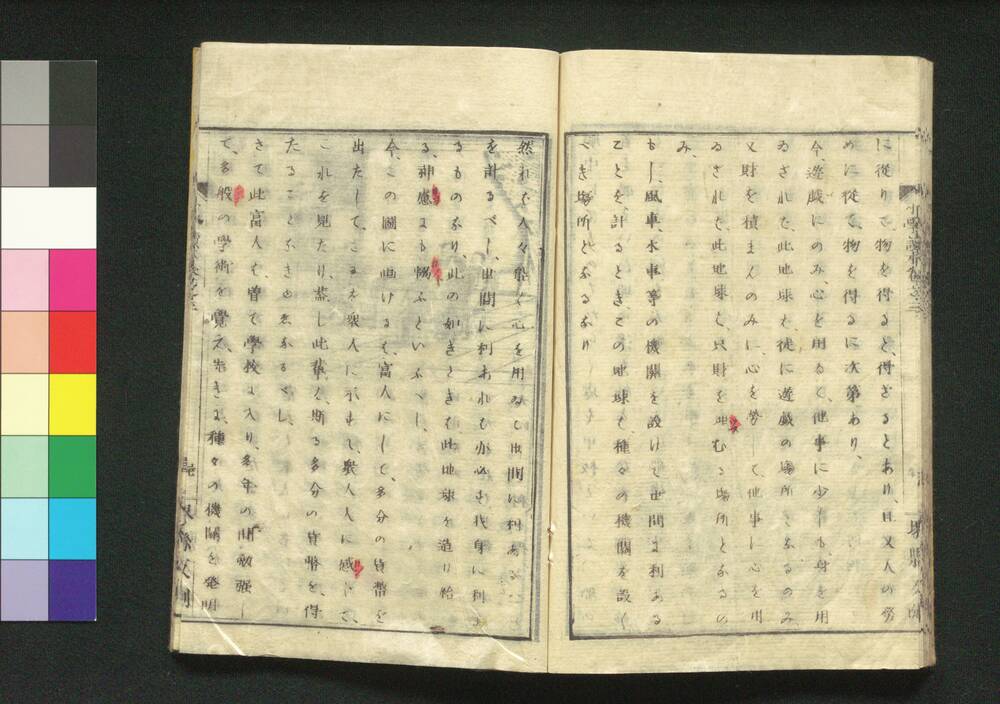 に從りて、物を得ると、得ざるとあり、且又人の勞
めに從て、物を得るに次第あり、
今、遊戯にのみ、心を用ゐて、他事に少しも、身を用
ゐざれば、此地球も、徒に遊戯の場所となるのみ
又財を積まんのみに、心を勞して、他事に心を用
ゐざれば、此地球も、只財を埋むる場所となるの
み、
もし、風車、水車等の機關を設けて、世間に利ある
ことを、計るときは、この地球も、種々の機關を設く
べき場所となるなり
然れば、人々能く心を用ゐて、世間に利ある
を計るべし、世間に利あれば、亦必ず我身に利
るものなり、此の如きときは、此地球を造り給
る、神慮にも、協ふといふべし、
今、この圖に畫けるは、富人にして、多分の貨幣を
出だして、これを衆人に示すに、衆人大に感じて、
これを見たり、蓋し此輩も、斯る多分の貨幣を、得
たることなきゆゑなるべし、
さて此富人も、曾て學校に入り、多年の間勉强し
て、多般の學術を覺え、先きに、種々の機關を發明